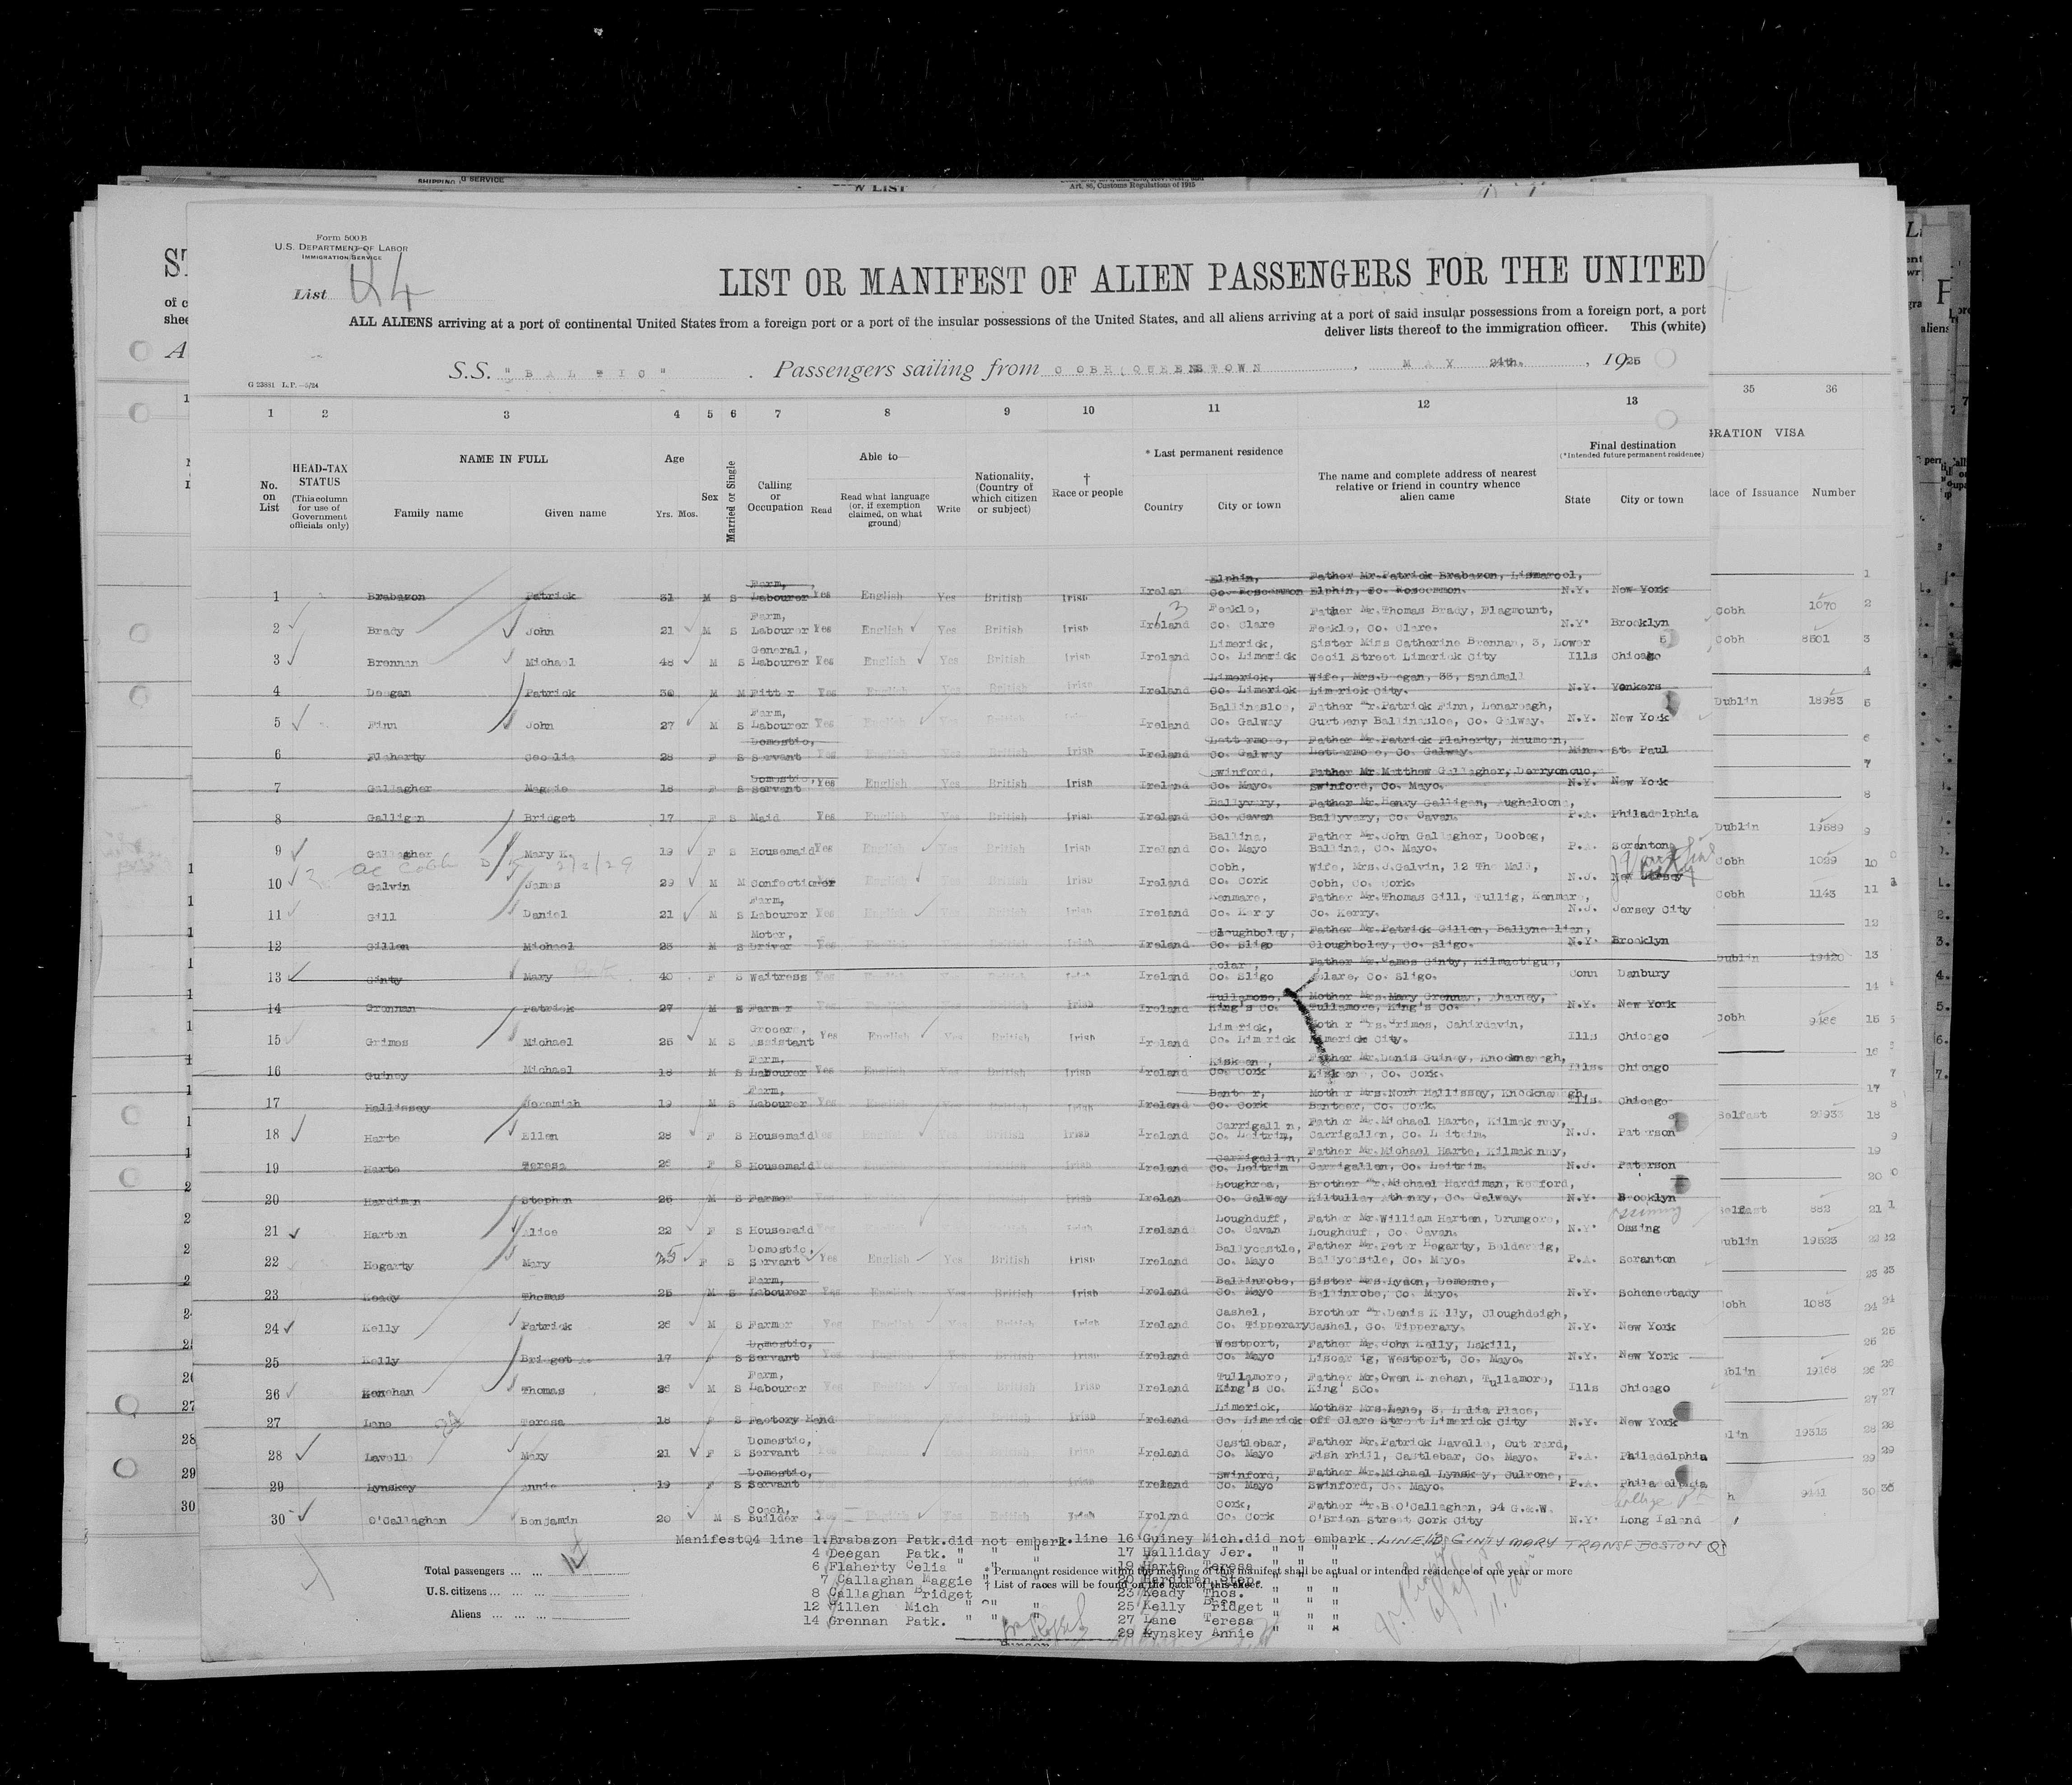 SHIPPING SERVICE
W LIST
Art. 86, Customs Regulations of 1915
Form 500 B
U.S. DEPARTMENT OF LABOR
IMMIGRATION SERVICE
List Q4
LIST OR MANIFEST OF ALIEN PASSENGERS FOR THE UNITED
ALL ALIENS arriving at a port of continental United States from a foreign port or a port of the insular possessions of the United States, and all aliens arriving at a port of said insular possessions from a foreign port, a port
deliver lists thereof to the immigration officer. This (white)
G 23881 L.P.—5/24
S.S. "BALTIC". Passengers sailing from COBH(QUEENSTOWN, MAY 24th., 1925
1 2 3 4 5 6 7 8 9 10 11 12 13 35 36
GRATION VISA
No. on List
HEAD-TAX STATUS (This column for use of Government officials only)
NAME IN FULL Family name Given name
Age Yrs. Mos.
Sex
Married or Single
Calling or Occupation
Able to— Read Read what language (or, if exemption claimed, on what ground) Write
Nationality, (Country of which citizen or subject)
† Race or people
* Last permanent residence Country City or town
The name and complete address of nearest relative or friend in country whence alien came
Final destination (*Intended future permanent residence) State City or town
lace of Issuance Number
1 Brabazon Patrick 31 M S Farm, Labourer Yes English Yes British Irish Irelan Elphin, Co. Roscommon Father Mr.Patrick Brabazon, Lismarool, Elphin, Co. Roscommon. N.Y. New York 1
2 Brady John 21 M S Farm, Labourer Yes English Yes British Irish Ireland Feakle, Co. Clare Father Mr.Thomas Brady, Flagmount, Feakle, Co. Clare. N.Y. Brooklyn Cobh 1070 2
3 Brennan Michael 48 M S General, Labourer Yes English Yes British Irish Ireland Limerick, Co. Limerick Sister Miss Catherine Brennan, 3, Lower Cecil Street Limerick City Ills Chicago Cobh 8501 3
4 Deegan Patrick 30 M M Fitter Yes English Yes British Irish Ireland Limerick, Co. Limerick Wife, Mrs.Deegan, 33, Sandmall Limerick City. N.Y. Yonkers 4
5 Finn John 27 M S Farm, Labourer Yes English Yes British Irish Ireland Ballinasloe, Co. Galway Father Mr.Patrick Finn, Lenareagh, Gurteeny Ballinasloe, Co. Galway. N.Y. New York Dublin 18983 5
6 Flaherty Cecelia 28 F S Domestic, Servant Yes English Yes British Irish Ireland Lettermore, Co. Galway Father Mr.Patrick Flaherty, Maumeen, Lettermore, Co. Galway. Minn. St. Paul 6
7 Gallagher Maggie 18 F S Domestic, Servant Yes English Yes British Irish Ireland Swinford, Co. Mayo. Father Mr Matthew Gallagher, Derryonouc, Swinford, Co. Mayo. N.Y. New York 7
8 Galligan Bridget 17 F S Maid Yes English Yes British Irish Ireland Ballyvary, Co. Cavan Father Mr.Henry Galligan, Aughaloona, Ballyvary, Co. Cavan. P.A. Philadelphia 8
9 Gallagher Mary K. 19 F S Housemaid Yes English Yes British Irish Ireland Ballina, Co. Mayo Father Mr.John Gallagher, Doobeg, Ballina, Co. Mayo. P.A. Scranton Dublin 19589 9
ac Cobh 2/8/29
10 Galvin James 29 M M Confectioner Yes English Yes British Irish Ireland Cobh, Co. Cork Wife, Mrs.J.Galvin, 12 The Mall, Cobh, Co. Cork. N.J. New Jersey Cobh 1029 10
11 Gill Daniel 21 M S Farm, Labourer Yes English Yes British Irish Ireland Kenmare, Co. Kerry Father Mr.Thomas Gill, Tullig, Kenmare, Co. Kerry. N.J. Jersey City Cobh 1143 11
12 Gillen Michael 25 M S Motor, Driver Yes English Yes British Irish Ireland Cloughboley, Co. Sligo Father Mr.Patrick Gillen, Ballyneelian, Cloughboley, Co. Sligo. N.Y. Brooklyn 12
13 Ginty Mary 40 F S Waitress Yes English Yes British Irish Ireland Tolare, Co. Sligo Father Mr.James Ginty, Kilmactigue, Tolare, Co. Sligo. Conn Danbury Dublin 19420 13
14 Grennan Patrick 27 M S Farmer Yes English Yes British Irish Ireland Tullamore, King's Co. Mother Mrs.Mary Grennan, Rharney, Tullamore, King's Co. N.Y. New York 14
15 Grimes Michael 25 M S Grocers, Assistant Yes English Yes British Irish Ireland Limerick, Co. Limerick Mother Mrs.Grimes, Cahirdavin, Limerick City. Ills Chicago Cobh 9466 15
16 Guiney Michael 18 M S Farm, Labourer Yes English Yes British Irish Ireland Kiskeam, Co. Cork Father Mr.Denis Guiney, Knocknanagh, Kiskeam, Co. Cork. Ills. Chicago 16
17 Hallissey Jeremiah 19 M S Farm, Labourer Yes English Yes British Irish Ireland Banteer, Co. Cork Mother Mrs.Nora Hallissey, Knocknanagh, Banteer, Co. Cork. Ills. Chicago 17
18 Harte Ellen 28 F S Housemaid Yes English Yes British Irish Ireland Carrigallen, Co. Leitrim, Father Mr.Michael Harte, Kilmakenny, Carrigallen, Co. Leitrim. N.J. Paterson Belfast 18
19 Harte Teresa F S Housemaid Yes English Yes British Irish Ireland Carrigallen, Co. Leitrim Father Mr.Michael Harte, Kilmakenny, Carrigallen, Co. Leitrim. N.J. Paterson 19
20 Hardiman Stephen 25 M S Farmer Yes English Yes British Irish Irelan Loughrea, Co. Galway Brother Mr.Michael Hardiman, Roxford, Kiltulla, Athenry, Co. Galway. N.Y. Brooklyn 20
21 Harten Alice 22 F S Housemaid Yes English Yes British Irish Ireland Loughduff, Co. Cavan Father Mr.William Harten, Drumgore, Loughduff, Co. Cavan. N.Y. Ossing Ossining Belfast 882 21
22 Hegarty Mary 35 F S Domestic, Servant Yes English Yes British Irish Ireland Ballycastle, Co. Mayo Father Mr.Peter Hegarty, Belderrig, Ballycastle, Co. Mayo. P.A. Scranton Dublin 19523 22
23 Keady Thomas 25 M S Farm, Labourer Yes English Yes British Irish Ireland Ballinrobe, Co. Mayo Sister Mrs.Lyson, Demesne, Ballinrobe, Co. Mayo. N.Y. Schenectady 23
24 Kelly Patrick 26 M S Farmer Yes English Yes British Irish Ireland Cashel, Co. Tipperary Brother Mr.Denis Kelly, Cloughdeigh, Cashel, Co. Tipperary. N.Y. New York Cobh 1083 24
25 Kelly Bridget 17 F S Domestic, Servant Yes English Yes British Irish Ireland Westport, Co. Mayo Father Mr.John Kelly, Lakill, Liscarnig, Westport, Co. Mayo. N.Y. New York 25
26 Kenehan Thomas 26 M S Farm, Labourer Yes English Yes British Irish Ireland Tullamore, King's Co. Father Mr.Owen Kenehan, Tullamore, King' sCo. Ills Chicago Dublin 19168 26
27 Lane Teresa 18 F S Factory Hand Ireland Limerick, Co. Limerick Mother Mrs.Lane, 3, Lelia Place, off Clare Street Limerick City N.Y. New York 27
28 Lavelle Mary 21 F S Domestic, Servant Yes English Yes British Irish Ireland Castlebar, Co. Mayo Father Mr.Patrick Lavelle, Out rard, Fisherhill, Castlebar, Co. Mayo. P.A. Philadelphia Dublin 19313 28
29 Lynskey Annie 19 F S Domestic, Servant Yes English Yes British Irish Ireland Swinford, Co. Mayo Father Mr.Michael Lynskey, Culrone, Swinford, Co. Mayo. P.A. Philadelphia 29
30 O'Callaghan Benjamin 20 M S Coach, Builder Yes English Yes British Irish Ireland Cork, Co. Cork Father Mr.B.O'Callaghan, 94 G.&.W. O'Brien Street Cork City N.Y. Long Island College Pt 9441 30
Manifest Q4 line 1.Brabazon Patk.did not embark. line 16 Guiney Mich.did not embark. LINE 13 GINTY MARY TRANSF BOSTON Q1
4 Deegan Patk. " " " 17 Halliday Jer. " " "
6 Flaherty Celia " " " 19 Harte Teresa " " "
7 Callaghan Maggie " 20 Hardiman Step.
8 Callaghan Bridget 23 Keady Thos. " " "
12 Gillen Mich " " " 25 Kelly Bridget " " "
14 Grennan Patk. " " " 27 Lane Teresa " " "
29 Lynskey Annie " " "
Total passengers ... ...
U.S. citizens ... ... ...
Aliens ... ... ...
* Permanent residence within the meaning of this manifest shall be actual or intended residence of one year or more
† List of races will be found on the back of this sheet.
Surgeon